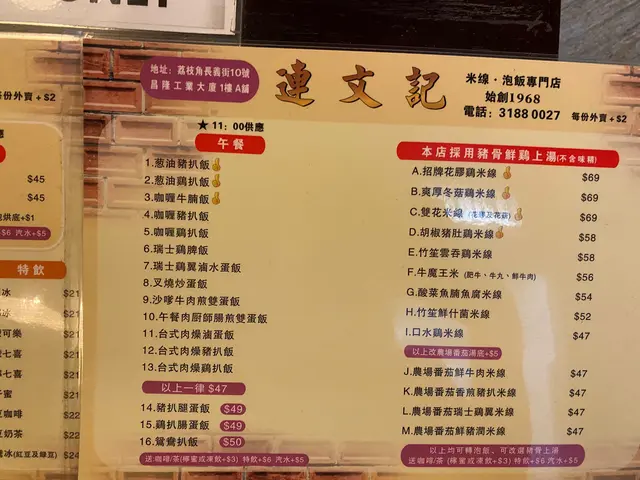 每份外賣 + $2
$45
$45
包烘底+$1
+$6 汽水+$5
特飲
冰 $21
冰 $21
可樂 $21
七喜 $21
七喜 $21
蜜 $21
咖啡 $22
奶茶 $22
冰(紅豆及綠豆) $24
地址：荔枝角長義街10號
昌隆工業大廈1樓A舖
連文記
米線・泡飯專門店
始創1968
電話：3188 0027
每份外賣 + $2
★11：00供應
午餐
1.葱油豬扒飯
2.葱油鷄扒飯
3.咖喱牛腩飯
4.咖喱豬扒飯
5.咖喱鷄扒飯
6.瑞士鷄髀飯
7.瑞士鷄翼滷水蛋飯
8.叉燒炒蛋飯
9.沙嗲牛肉煎雙蛋飯
10.午餐肉厨師腸煎雙蛋飯
11.台式肉燥滷蛋飯
12.台式肉燥豬扒飯
13.台式肉燥鷄扒飯
以上一律 $47
14.豬扒腿蛋飯 $49
15.鷄扒腸蛋飯 $49
16.鴛鴦扒飯 $50
送:咖啡/茶(檸蜜或凍飲+$3) 特飲+$6 汽水+$5
本店採用豬骨鮮鷄上湯(不含味精)
A.招牌花膠鷄米線 $69
B.爽厚冬菇鷄米線 $69
C.雙花米線 (花膠及花菇) $69
D.胡椒豬肚鷄米線 $58
E.竹笙雲吞鷄米線 $58
F.牛魔王米 (肥牛、牛丸、鮮牛肉) $56
G.酸菜魚腩魚腐米線 $54
H.竹笙鮮什菌米線 $52
I.口水鷄米線 $47
以上改農場番茄湯底+$5
J.農場番茄鮮牛肉米線 $47
K.農場番茄香煎豬扒米線 $47
L.農場番茄瑞士鷄翼米線 $47
M.農場番茄鮮豬潤米線 $47
以上均可轉泡飯、可改選豬骨上湯
送:咖啡/茶(檸蜜或凍飲+$3) 特飲+$6 汽水+$5